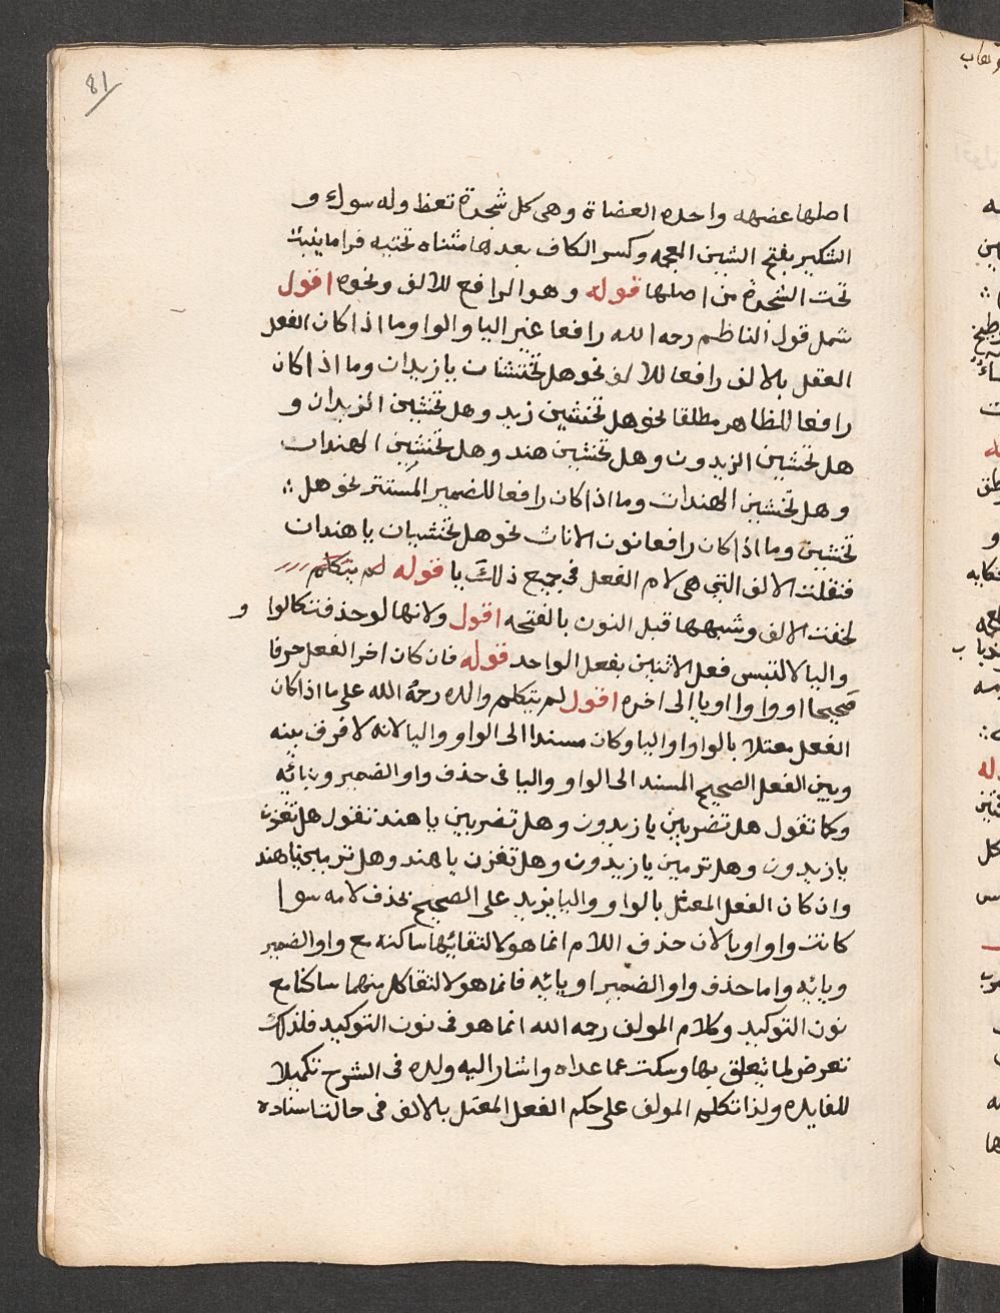 81
اصلها عضهه واحده العضاة وهى كل شجرة تعظ وله سوك و
الشكير بفتح الشين المعجمه وكسر الكاف بعدها مثناه تحتيه فرا ما ينبت
تحت الشجرة من اصلها قوله وهو الرافع للالف ونحوه اقول
شمل قول الناظم رحمه الله رافعا غير اليا والواو ما اذا كان الفعل
العقل بالالف رافعا للالف نحو هل تختشات يا زيدان وما اذا كان
رافعا للظاهر مطلقا نحو هل تختشين زيد وهل تختشين الزيدان و
هل تختشين الزيدون وهل تختشين هند وهل تختشين الهندات
وهل تختشين الهندات وما اذا كان رافعا للضمير المستتر نحو هل
تختشين وما اذا كان رافعا نون الاناث نحو هل تختشيان يا هندات
فنقلت الالف التي هى لام الفعل فى جميع ذلك يا قوله لم يتكلم
لخفت الالف وشبهها قبل النون بالفتحه اقول ولانها لو حذفت كالوا و
واليا لالتبس فعل الاثنين بفعل الواحد قوله فان كان اخر الفعل حرفا
صحيحا او واوا او يا الى اخره اقول لم يتكلم والده رحمه الله على ما اذا كان
الفعل معتلا بالواو او اليا وكان مسندا الى الواو واليا لانه لا فرق بينه
وبين الفعل الصحيح المسند الى الواو واليا فى حذف واو الضمير ويائه
وكما تقول هل تضربين يا زيدون وهل تضربين يا هند تقول هل تغزن
يا زيدون وهل ترمين يا زيدون وهل تغزن يا هند وهل ترمين يا هند
وان كان الفعل المعتل بالواو واليا يزيد على الصحيح بحذف لامه سوا
كانت واوا او يا لان حذف اللام انما هو لالتقائها ساكنه مع واو الضمير
ويائه واما حذف واو الضمير او يائه فانما هو لالتقا كل منهما ساكنا مع
نون التوكيد وكلام المولف رحمه الله انما هو فى نون التوكيد فلذلك
تعرض لما يتعلق بها وسكت عما عداه واشار اليه ولده فى الشرح تكميلا
للفايده ولذا تكلم المولف على حكم الفعل المعتل بالالف فى حالة اسناده